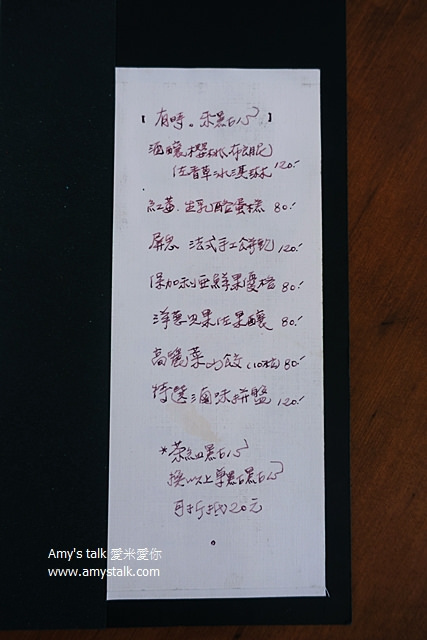 【有時。茶點ㄉㄨㄞ】
酒釀櫻桃布朗尼
佐香草冰淇淋 120.-
紅莓.生乳酪蛋糕 80.-
法式手工餅乾 120.-
保加利亞鮮果優格 80.-
洋蔥貝果佐果醬 80.-
高麗菜水餃(10粒) 80.-
特選滷味拼盤 120.-
以上單點
可折抵20元
Amy's talk 愛米愛你
www.amystalk.com